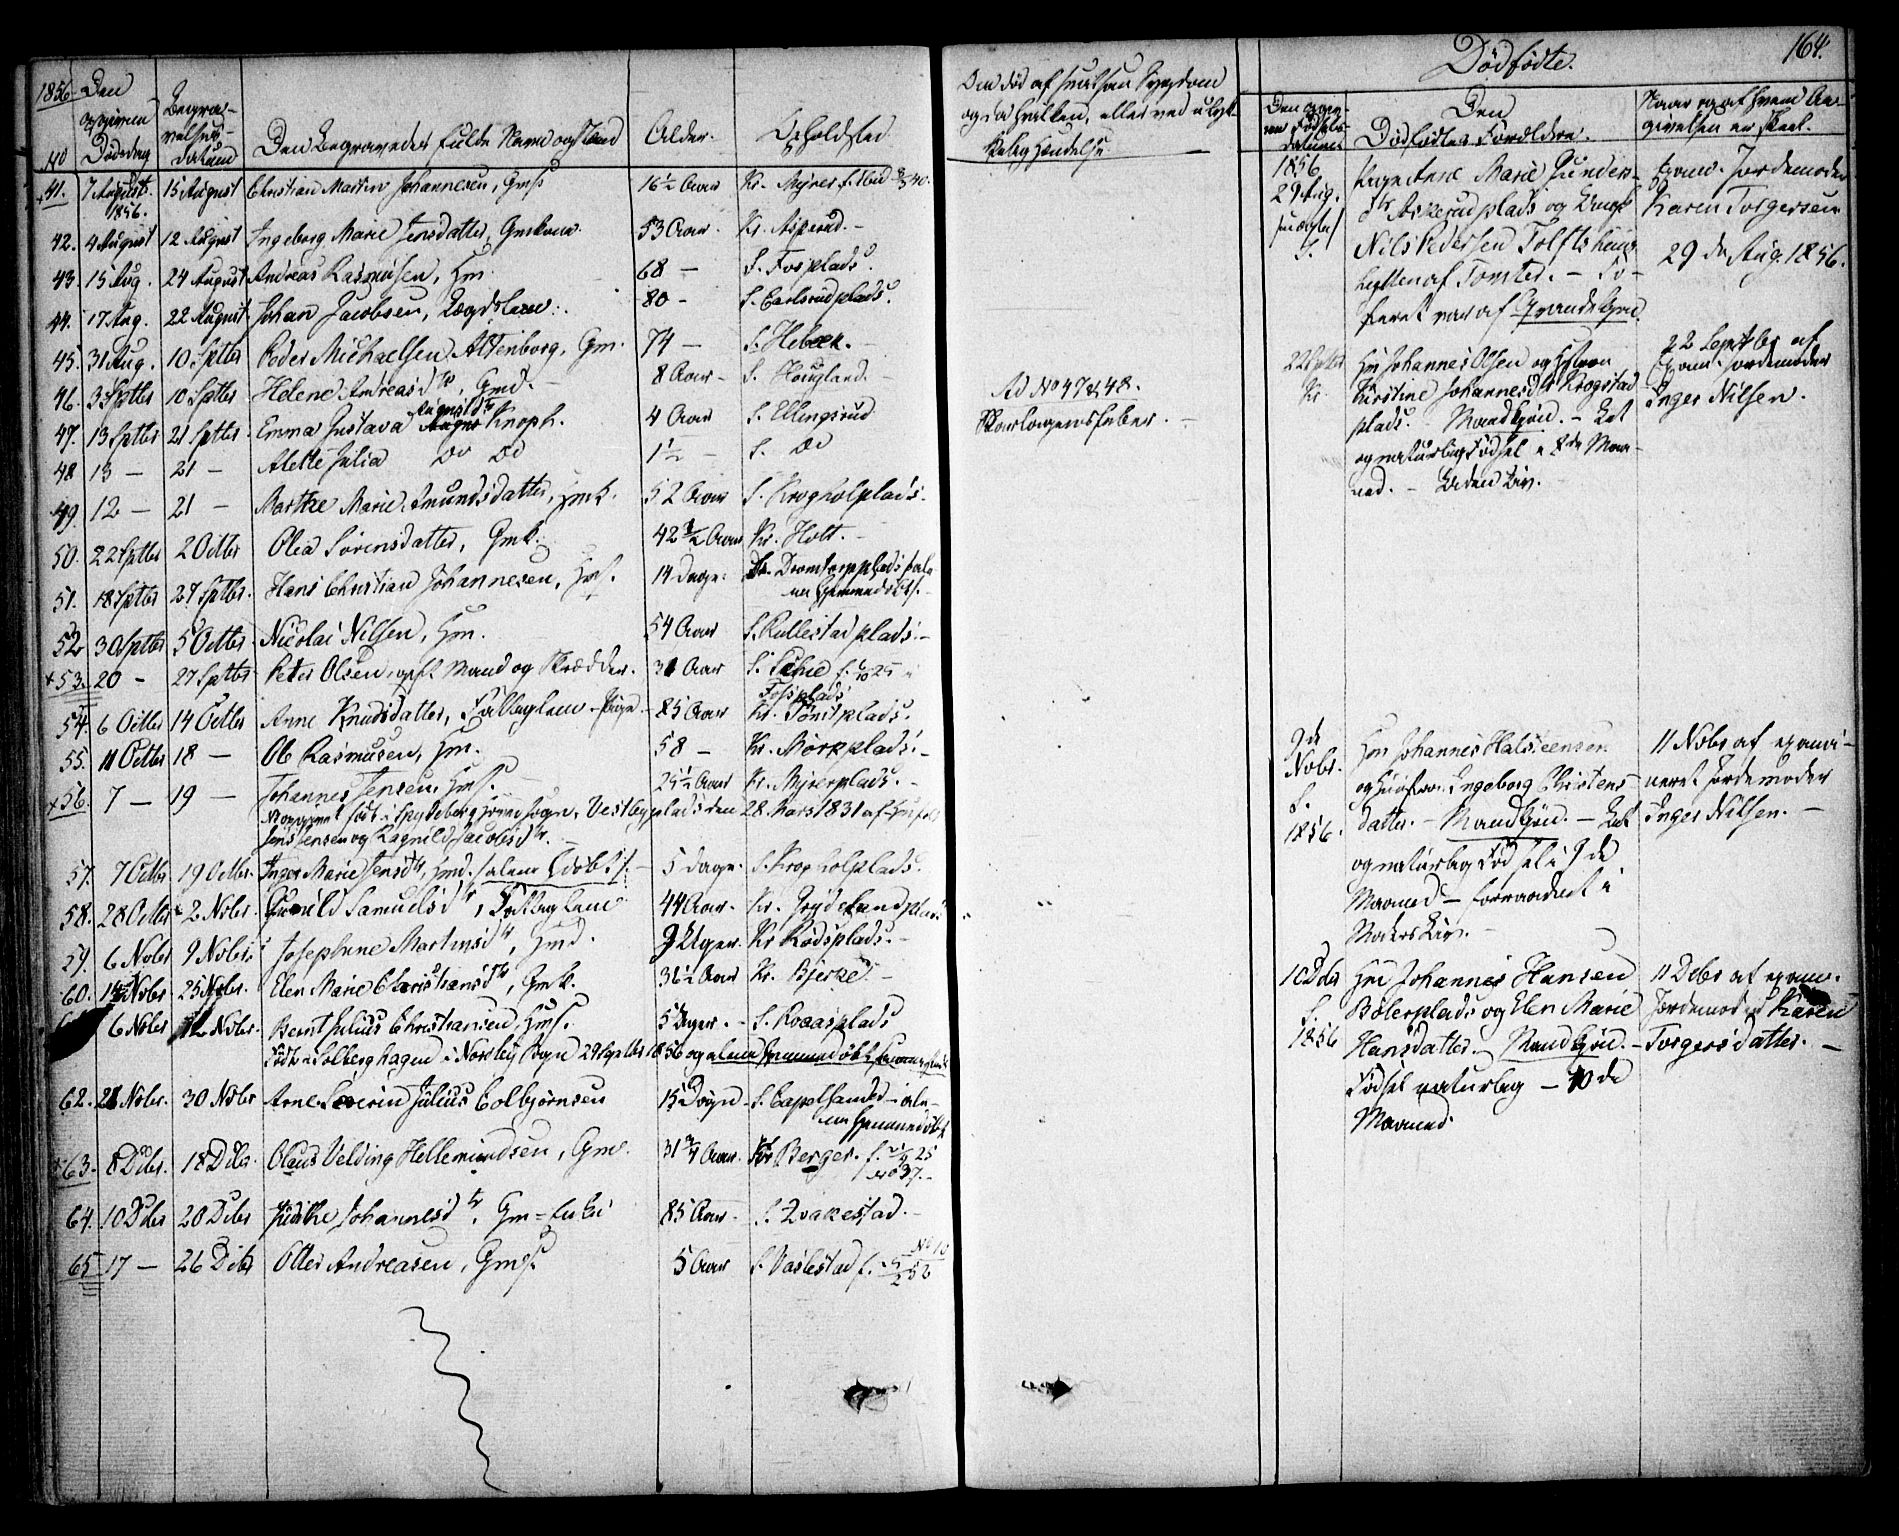 1856
Den
opgivne
Dødsdag
Begra-
velses-
datum
No
Den Begravedes fulde Navn og Stand
Alder.
Opholdsted
41. 7 August 1856. 15 August Christian Martin Johannesen, Gms. 16½ Aar Kr. Myrer f.
42. 4 August 12 August Ingeborg Marie Jensdatter, Gmkone 53 Aar. Kr. Asperud. -
43. 15 Aug. 24 August Andreas Rasmusen, Hm. 68 - S. Fosplads.
44. 17 Aug. 22 August Johan Jacobsen, Lægdslem. 80 - S. Carlsrudplads.
45. 31 Aug. 10 Sptbr Peder Michaelsen Altenborg, Gm. 74 - S. Hebæk. -
46. 3 Sptbr 10 Sptbr Helene Andreasdtr, Gmd. - 8 Aar - S. Hougland. -
47. 13 Sptbr 21 Sptbr. Emma Gustava Augustdtr Knoph. 4 Aar S. Ellingsrud
48 13 - 21 - Alette Julia Do Do 1½ - S. Do
49. 12 - 21 - Marthe Marie Amundsdatter, Hmk. 52 Aar S. Krogholplads.
50. 22 Sptbr 2 Octbr Olea Sørensdatter, Gmk. 42½ Aar Kr. Holt. -
51. 18 Sptbr 27 Sptbr. Hans Christian Johannesen, Hms. 14 Dage. Kr. Dromtorpplads
ne Hjemmedøbt. -
52 30 Sptbr 5 Octbr Nicolai Nilsen, Hm. 54 Aar S. Rullestadplads. -
+53. 20 - 27 Sptbr Peter Olsen, Mand og Skrædder. 31 Aar S. Schie f. 25
54. 6 Octbr 14 Octbr Anne Knudsdatter, Fattiglem - Pige. 85 Aar Fosplads Kr. plads.
55. 11 Octbr 18 - Ole Rasmusen, Hm. 58 - Kr. Mørkplads. -
+56. 7 - 19 - Johannes Jensen, Hms. 25½ Aar Kr. Myrerplads. -
født i Spydeberg Sogn, Vestbyplads den 28 Mars 1831 af
Jens Jensen og Ragnild Jacobsdtr. -
57. 7 Octbr 19 Octbr. Inger Marie Jensdtr, Hmd. /alene Hdøbt/. - 5 Dage. S. Krogholplads.
58. 28 Octbr 2 Nobr. Gunild Samuelsdtr, Fattiglem 44 Aar. Kr. Frydelundplads
59. 6 Nobr 9 Nobr. Josephine Martinsdtr, Hmd. 9 Uger. Kr Rødsplads. -
60. 15 Nobr 25 Nobr. Elen Marie Christiansdtr, Gmk. 36½ Aar Kr. Bjerke. -
6 Nobr 12 Nobr. Bernt Julius Christiansen, Hms. 5 Uger. - S. Roaasplads
Født i Solberghagen i Nordby Sogn 29 Sptbr 1856 og alene hjemmedøbt
62. 21 Nobr. 30 Nobr Arne Severin Julius Colbjørnsen 15 Døgn - S. Capelsandes - ale-
ne hjemmedøbt
+63. 8 Dcbr. 18 Dcbr Olaus Velding Hellemundsen, Gm. 31¾ Aar. Kr Berger. f. 25
No 37. -
64. 10 Dcbr 20 Dcbr Judithe Johannesdtr, Gm-Enke 85 Aar - S. Kvakestad. -
65 17 - 26 Dcbr Otter Andreasen, Gms. 5 Aar S. Vaslestad f. No 10 52
Om død af smitsom Sygdom
og da hvilken, eller ved ulyk-
kelig Hændelse.
Ad No 47 & 48.
Skarlagensfeber. -
Dødfødte.
164.
Den opgiv-
ne Fødsels-
datum
Den
Dødfødtes Forældre.
Naar og af hvem An-
givelsen er skeet.
1856
29 Aug.
/uægte/
S.
Pige Anne Marie Gunders-
dtr Askerudplads og Ungk.
Nils Pedersen Tofts
af Tomter. -
fæet var af Qvindekjøn.
Exam. Jordemoder
Karen Torgersen
29 de Aug. 1856.
22 Sptbr
Kr.
Hm Johannes Olsen og Hustru
Kirstine Johannesdtr Krogstad
plads. - Mandkjøn. - Let
og naturlig Fødsel i 8de Maa-
ned. - Uden Liv. -
22 Septbr af
Exam. Jordemoder
Inger Nilsen.
9 de
Nobr.
S.
1856.
Hm Johannes Halvorsen
og Hustru Ingeborg Christens-
datter. - Mandkjøn. - Let
og naturlig Fødsel i 9 de
Maaned - forraadnet i
Moders Liv. -
11 Nobr af exami-
neret Jordemoder
Inger Nilsen. -
10 Dcbr
S.
1856
Hm Johannes Hansen
Bølerplads og Elen Marie
Hansdatter. Mandkjøn. -
Fødsel naturlig - 10 de
Maaned.
11 Dcbr af exam.
Jordemoder Karen
Torgersdatter. -